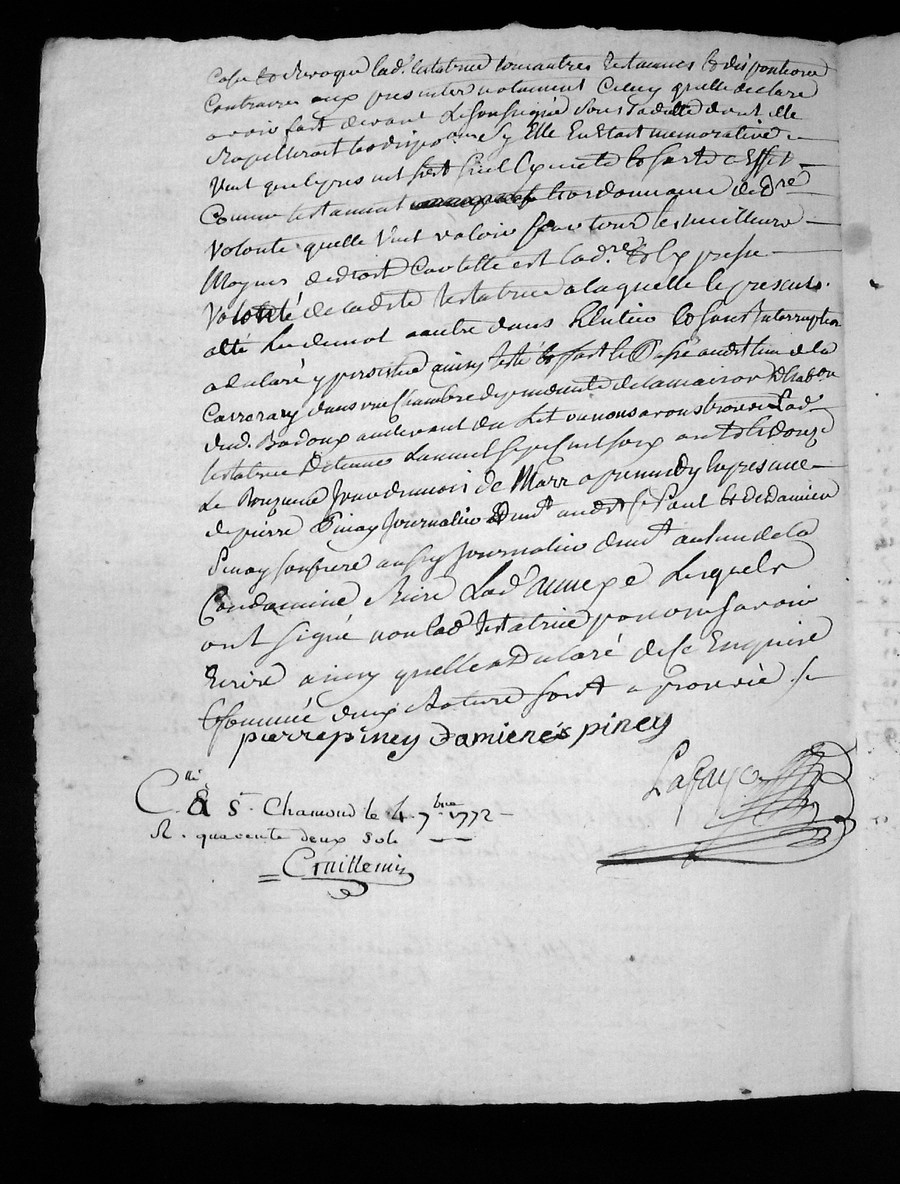 Casse et Revoque lad. testatrice tous autres testaments et dispositions
Contraires aux presentes notament Celuy quelle declare
avoir fait devant Le soussigné sous la datte dont elle
Rapelleroit les dispo.ons sy Elle En Etait memorative
Veut que le present soit Seul Execute et sorte Effet
Comme testament et ordonnance de dre
Volonte quelle Veut valoir pour tous les meilleurs
Moyens de droit Car telle est lad. Expresse
Volonté de ladite testatrice a laquelle le present
a eté Lu de mot a autre dans et sans Interruption
a declaré y persister ainsy testé et fait et Passé audit lieu de la
dans une Chambre dependante de la maison d'habon
dud. Badoux audevant du Lit ou nous avons trouvé Lad.
testatrice detenue Lan mil sept cent soix ante et douze
Le Onzieme Jour du mois de Mars apres midy En presence
de pierre Piney Journalier demt audit St Paul et de Damien
Piney son frere aussy Journalier demt au lieu de la
Condamine Riere Lad. annexe Lesquels
ont signé non lad. testatrice pour ne savoir
Ecrire ainsy quelle a Declaré de ce Enquise
et sommée deux Rature sont aprouvé ./.
pierre piney Damienés piney
Lafay
Clle à St. Chamond le 4 7bre 1772
R. quarente deux sols